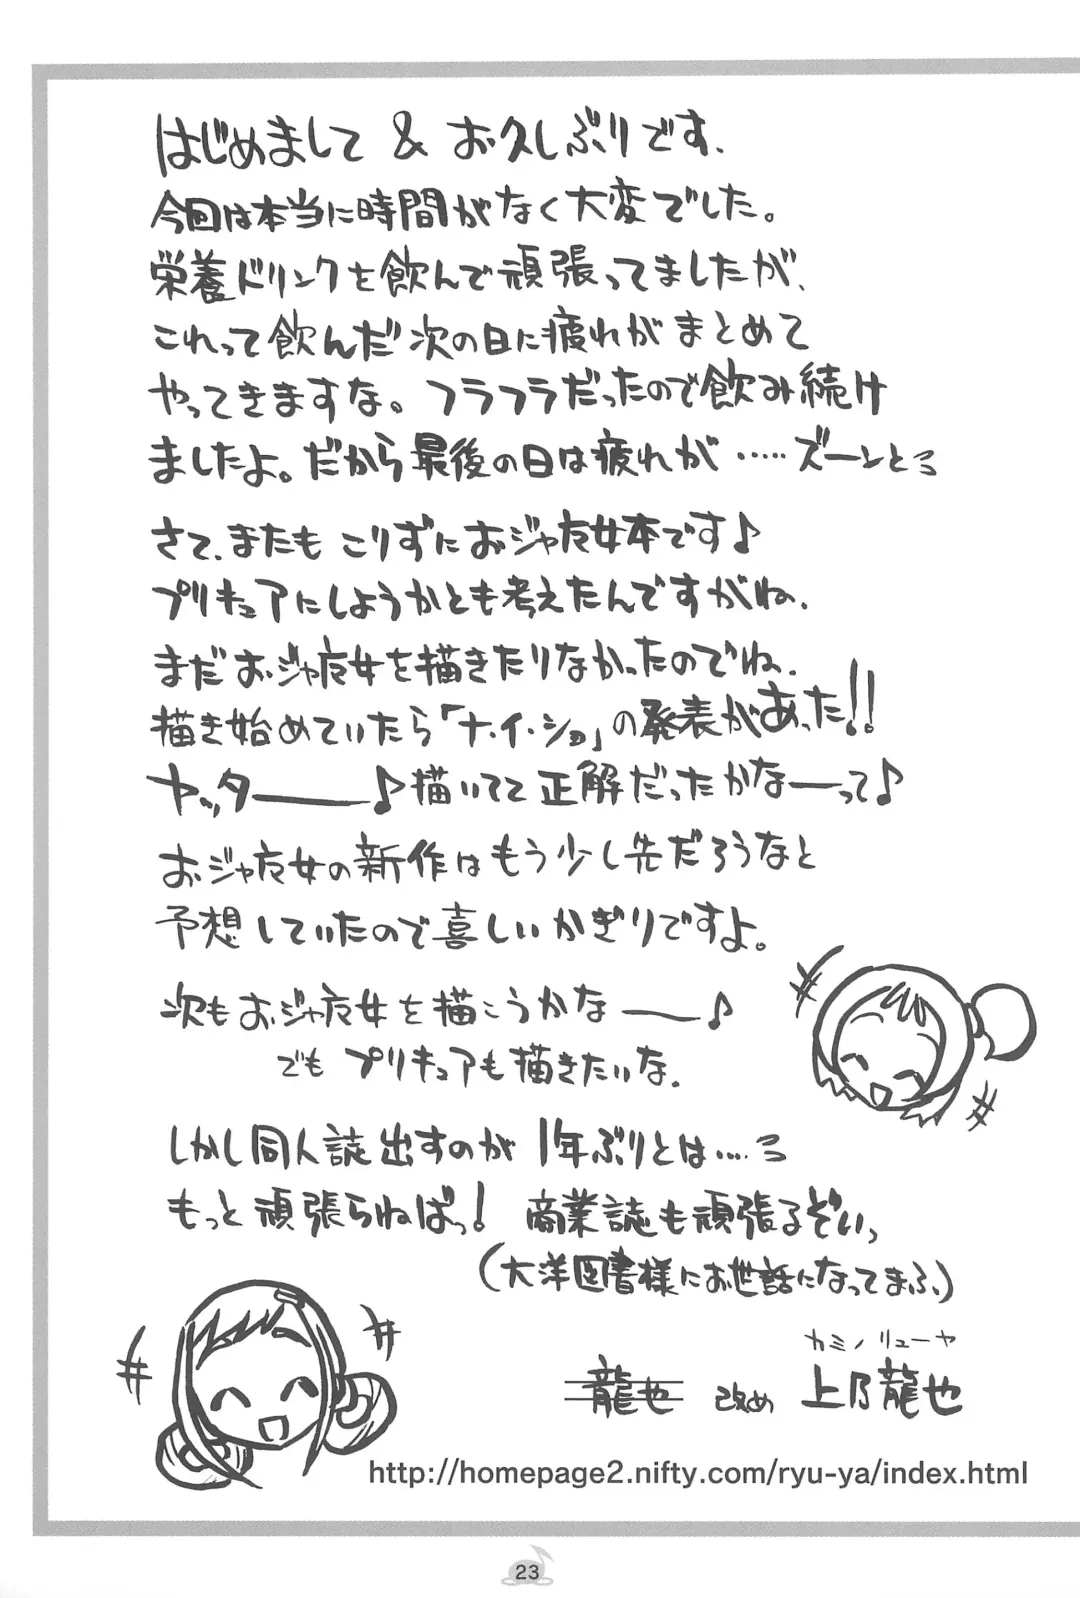 はじめまして & お久しぶりです、
今回は本当に時間がなく大変でした。
栄養ドリンクを飲んで頑張ってましたが、
これって飲んだ次の日に疲れがまとめて
やってきますな。フラフラだったので飲み続け
ましたよ。だから最後の日は疲れが……ズーンとろ
さて、またもこりずにおジャ魔女本です♪
プリキュアにしようかとも考えたんですがね、
まだおジャ魔女を描きたりなかったのでね、
描き始めていたら「ナ・イ・ショ」の発表があった!!
ヤッター――♪描いてて正解だったかなーって♪
おジャ魔女の新作はもう少し先だろうなと
予想していたので喜しいかぎりですよ。
次もおジャ魔女を描こうかな――♪
でもプリキュアも描きたいな。
しかし同人誌出すのが1年ぶりとは……ろ
もっと頑張らねばっ! 商業誌も頑張るぞいっ
(大洋図書様にお世話になってまふ)
カミノリューヤ
龍也 改め 上乃龍也
http://homepage2.nifty.com/ryu-ya/index.html
23